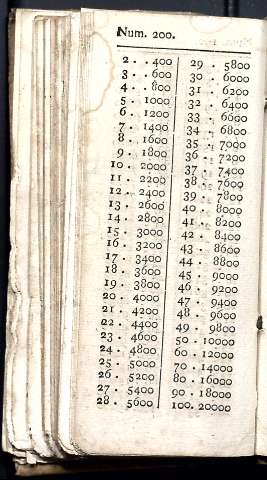 Num. 200.
2 . . 400
3 . . 600
4 . . 800
5 . 1000
6 . 1200
7 . 1400
8 . 1600
9 . 1800
10 . 2000
11 . 2200
12 . 2400
13 . 2600
14 . 2800
15 . 3000
16 . 3200
17 . 3400
18 . 3600
19 . 3800
20 . 4000
21 . 4200
22 . 4400
23 . 4600
24 . 4800
25 . 5000
26 . 5200
27 . 5400
28 . 5600
29 . 5800
30 . 6000
31 . 6200
32 . 6400
33 . 6600
34 . 6800
35 . 7000
36 . 7200
37 . 7400
38 . 7600
39 . 7800
40 . 8000
41 . 8200
42 . 8400
43 . 8600
44 . 8800
45 . 9000
46 . 9200
47 . 9400
48 . 9600
49 . 9800
50 . 10000
60 . 12000
70 . 14000
80 . 16000
90 . 18000
100. 20000